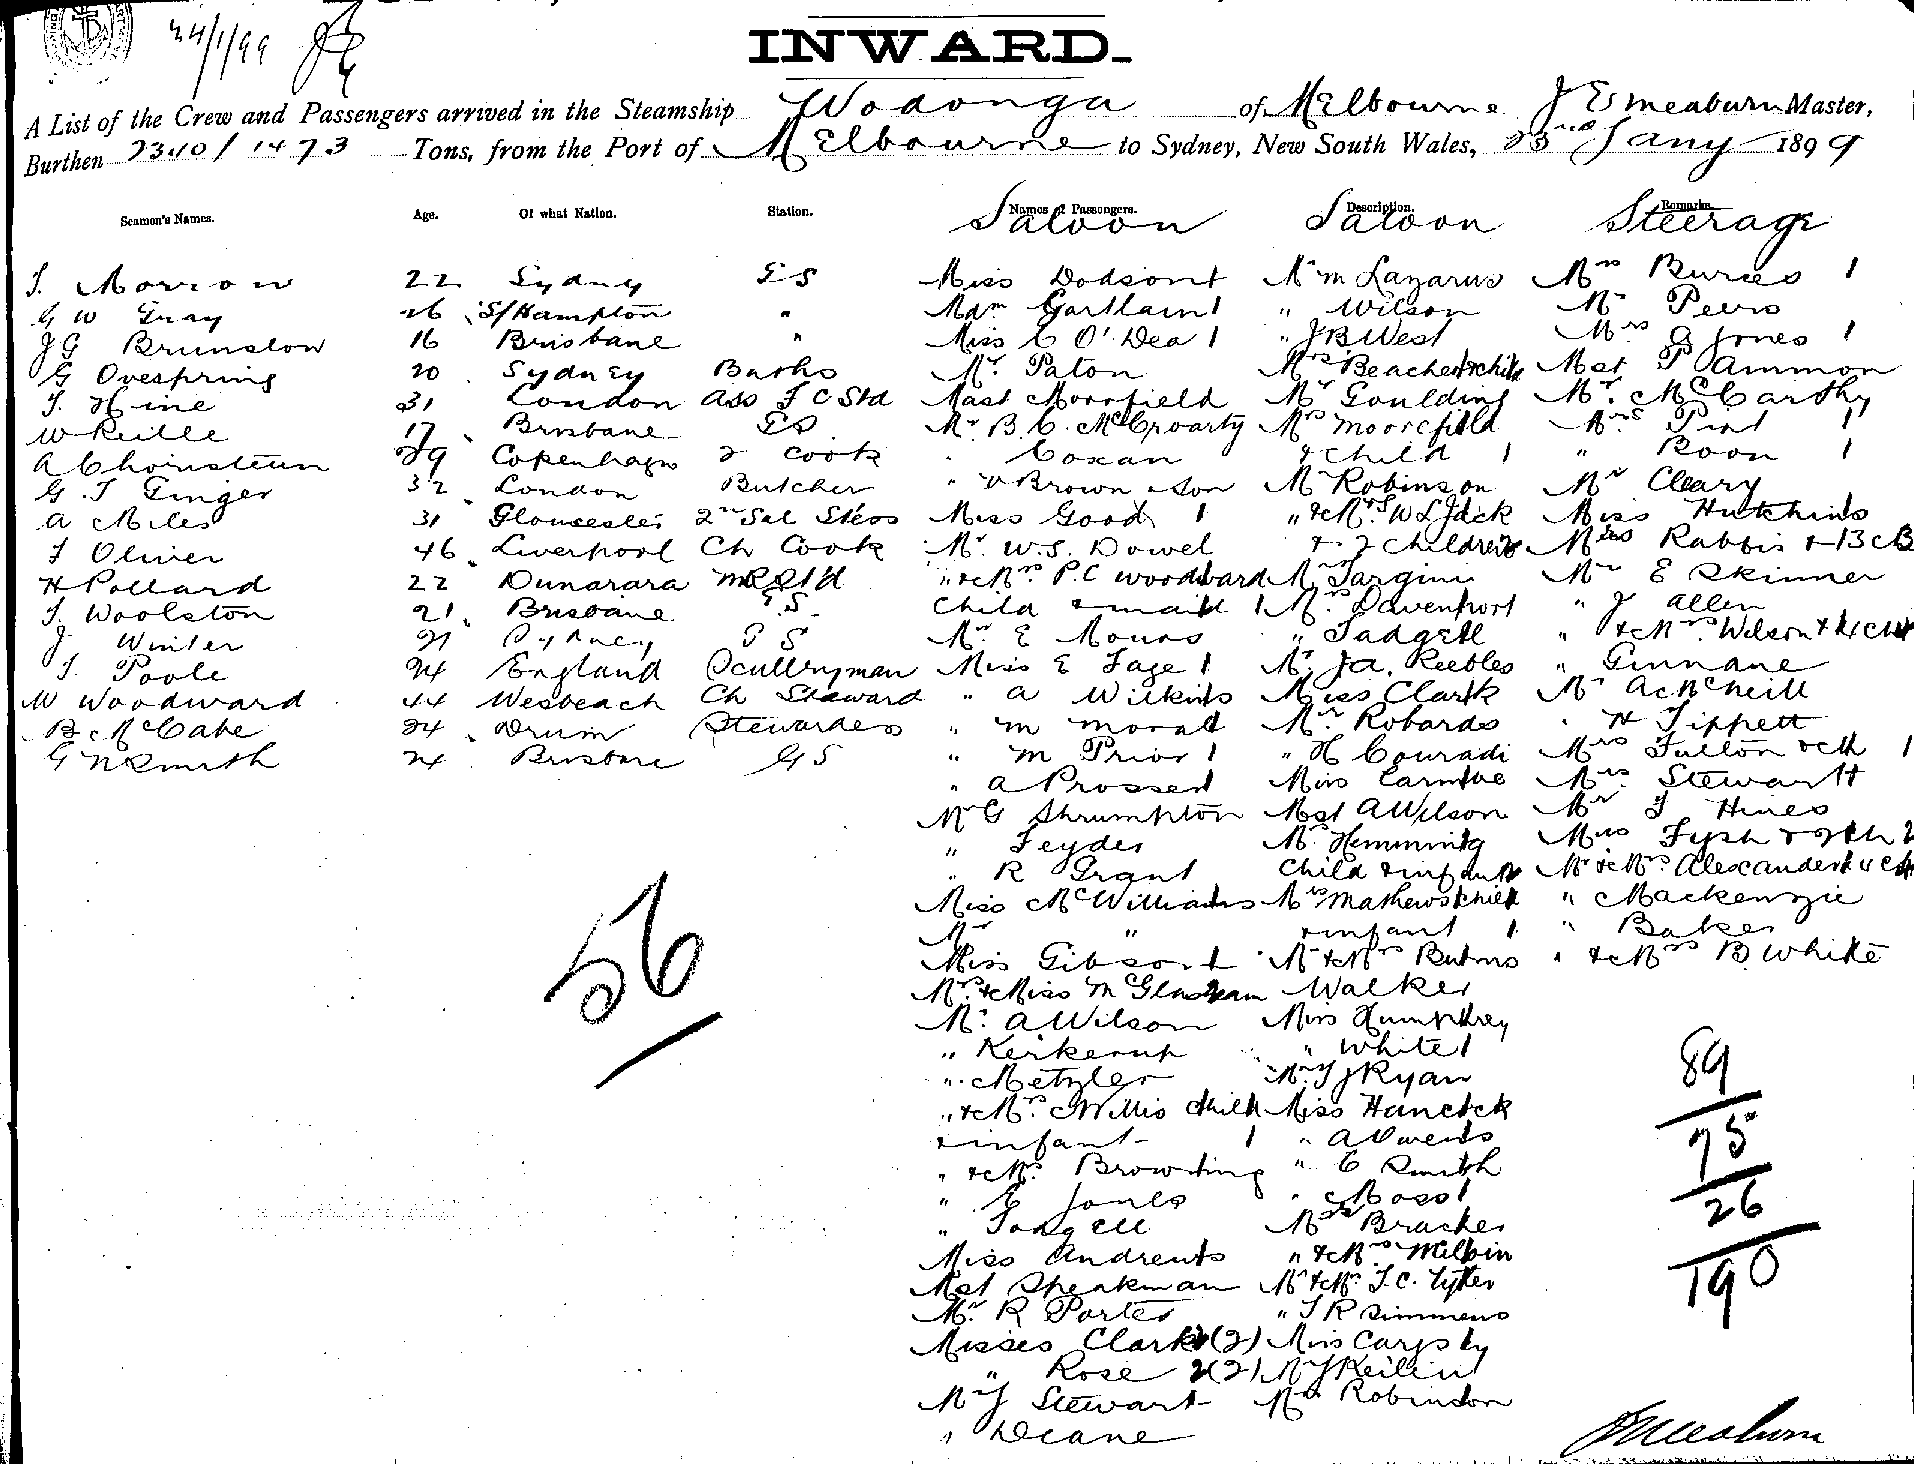 24/1/99
INWARD.
A List of the Crew and Passengers arrived in the Steamship Wodonga of Melbourne J E Meaburn Master,
Burthen 2340/1473 Tons, from the Port of Melbourne to Sydney, New South Wales, 23rd Jany 1899
Seamen's Names. Age. Of what Nation. Station. Names of Passengers. Description. Remarks.
Saloon Saloon Steerage
T. Morrow 22 Sydney GS Miss Dodson 1 Mr M Lazarus Mrs 1
G W Gray 26 S/Hampton " Mdm 1 " Wilson Mr Peers
J G 16 Brisbane " Miss C O'Dea 1 " J B West Mrs A Jones 1
G Ovespring 20 Sydney Baths Mr. Paton Mrs Beacher & child Mst P Ammon
T. Hine 31 London Ass F C Std Mast Moorfield Mr Goulding Mr. McCarthy
W 17 Brisbane GS Mr. B. C. Mrs Moorefield Mrs 1
A 29 Copenhagen 2 Cook " Coxan & Child 1 " Boon 1
G. T Ginger 32 London Butcher " V Brown & Son Mr Robinson Mr Cleary
A Miles 31 Gloucester 2nd Sal Stew Miss Good 1 " & Mrs W L Jack Miss Hutchins
T Oliver 46 Liverpool Ch Cook Mr. W. S. Dowel & 2 children
H Pollard 22 Dunarara " & Mrs. P. C Woodward Mr Mr E Skinner
T. Woolston 21 Brisbane G.S. Child & maid 1 Mrs Davenport " J Allen
J Winter 21 Sydney G S Mr. E Mr " " & Mrs Wilson & 4 ch
T. Poole 24 England Scullryman Miss E Page 1 Mr. J A. Peebles " Ginnane
W Woodward 44 Wesbeach Ch Steward " A Wilkins Miss Clark Mr A McNeill
B McCabe 24 Drum Stewardess " M Mr Robards " H Tippett
G N Smith 24 Brisbane G S " M Prior 1 " H Couradi Mrs Fulton & ch 1
" A Prosser 1 Miss Mrs. Stewart
Mr G Shrumpton Mst A Wilson Mr T Hines
" Feyder Mrs Hemming Mrs Fysh & 2 ch 2
" R Grant Child & infant Mr & Mrs Alexander & 4 ch
Miss McWilliams Mrs Mathews child " Mackenzie
Mr " & infant 1 " Baker
Miss Gibson 1 Mr & Mrs Burns " & Mrs B. White
Mrs. & Miss Walker
Mr. A Wilson Miss Humphrey
" " White 1
" Metzler Mr. T J Ryan
" & Mrs. Willis child Miss Hancock
& infant 1 " A Owens
" & Mrs Browning " E Smith
" E Jones " Moss 1
" Mrs Bracher
Miss Andrews " & Mrs
Mst Speakman Mr & Mrs T. C. Tyler
Mr. R Porter " T R Simmons
Misses Clark (2) Miss
" Rose 2(2) Mr J
Mr J Stewart Mrs Robinson
" Deane
56
89
75
26
190
J E Meaburn